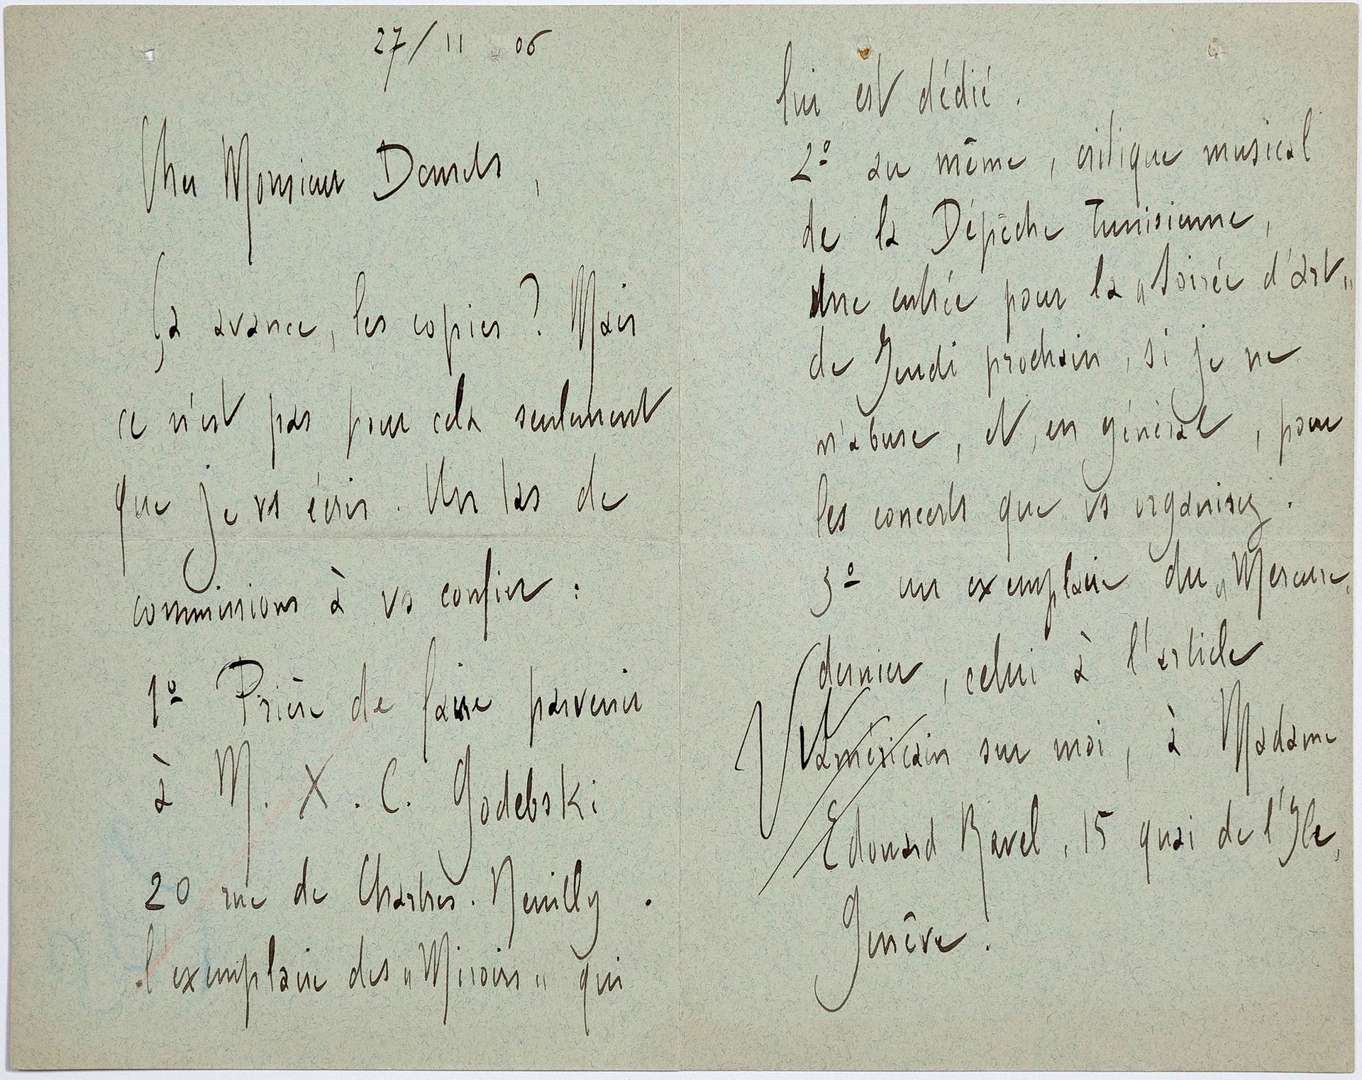 27/11 06
Cher Monsieur Demets,
Ça avance, les copies? Mais
ce n'est pas pour cela seulement
que je vs écris. Un tas de
commissions à vs confier :
1º Prière de faire parvenir
à M. X. C. Godebski
20 rue de Chartres. Neuilly.
l'exemplaire des "Miroirs" qui
lui est dédié.
2º au même, critique musical
de la Dépêche Tunisienne,
Une entrée pour la "Soirée d'art"
de Jeudi prochain, si je ne
m'abuse, et, en général, pour
les concerts que vs organisez.
3º un exemplaire du "Mercure"
dernier, celui à l'article
américain sur moi, à Madame
Edouard Ravel, 15 quai de l'Ile,
Genève.